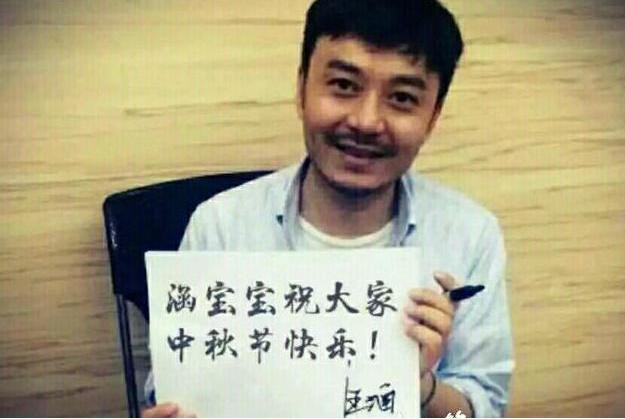 涵宝宝祝大家
中秋节快乐！
汪涵